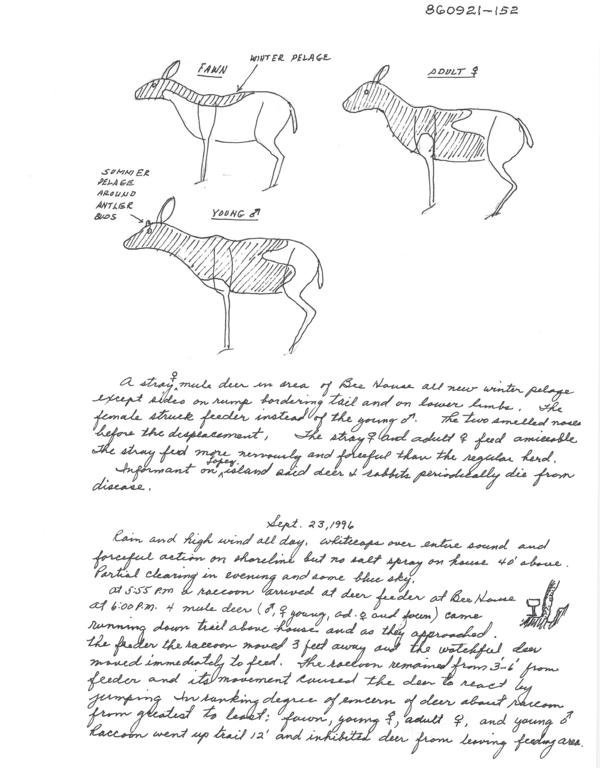 860921-152
FAWN
WINTER PELAGE
ADULT ♀
SUMMER
PELAGE
AROUND
ANTLER
BUDS
YOUNG ♂
A stray ♀ mule deer in area of Bee House all new winter pelage
except sides on rump bordering tail and on lower limbs. The
female struck feeder instead of the young ♂. The two smelled noses
before the displacement. The stray ♀ and adult ♀ feed amiceable
The stray fed more nervously and forceful than the regular herd.
Informant on Lopez island said deer & rabbits periodically die from
disease.
Sept. 23, 1996
Rain and high wind all day. Whitecaps over entire sound and
forceful action on shoreline but no salt spray on house 40' above.
Partial clearing in evening and some blue sky.
At 5:55 PM a raccoon arrived at deer feeder at Bee House
at 6:00 P.M. 4 mule deer (♂, ♀ young, ad. ♀ and fawn) came
running down trail above house and as they approached
the feeder the raccoon moved 3 feet away and the watchful deer
moved immediately to feed. The raccoon remained from 3-6' from
feeder and its movement caused the deer to react by
jumping. In ranking degree of concern of deer about raccoon
from greatest to least: fawn, young ♀, adult ♀, and young ♂
Raccoon went up trail 12' and inhibited deer from leaving feeding area.